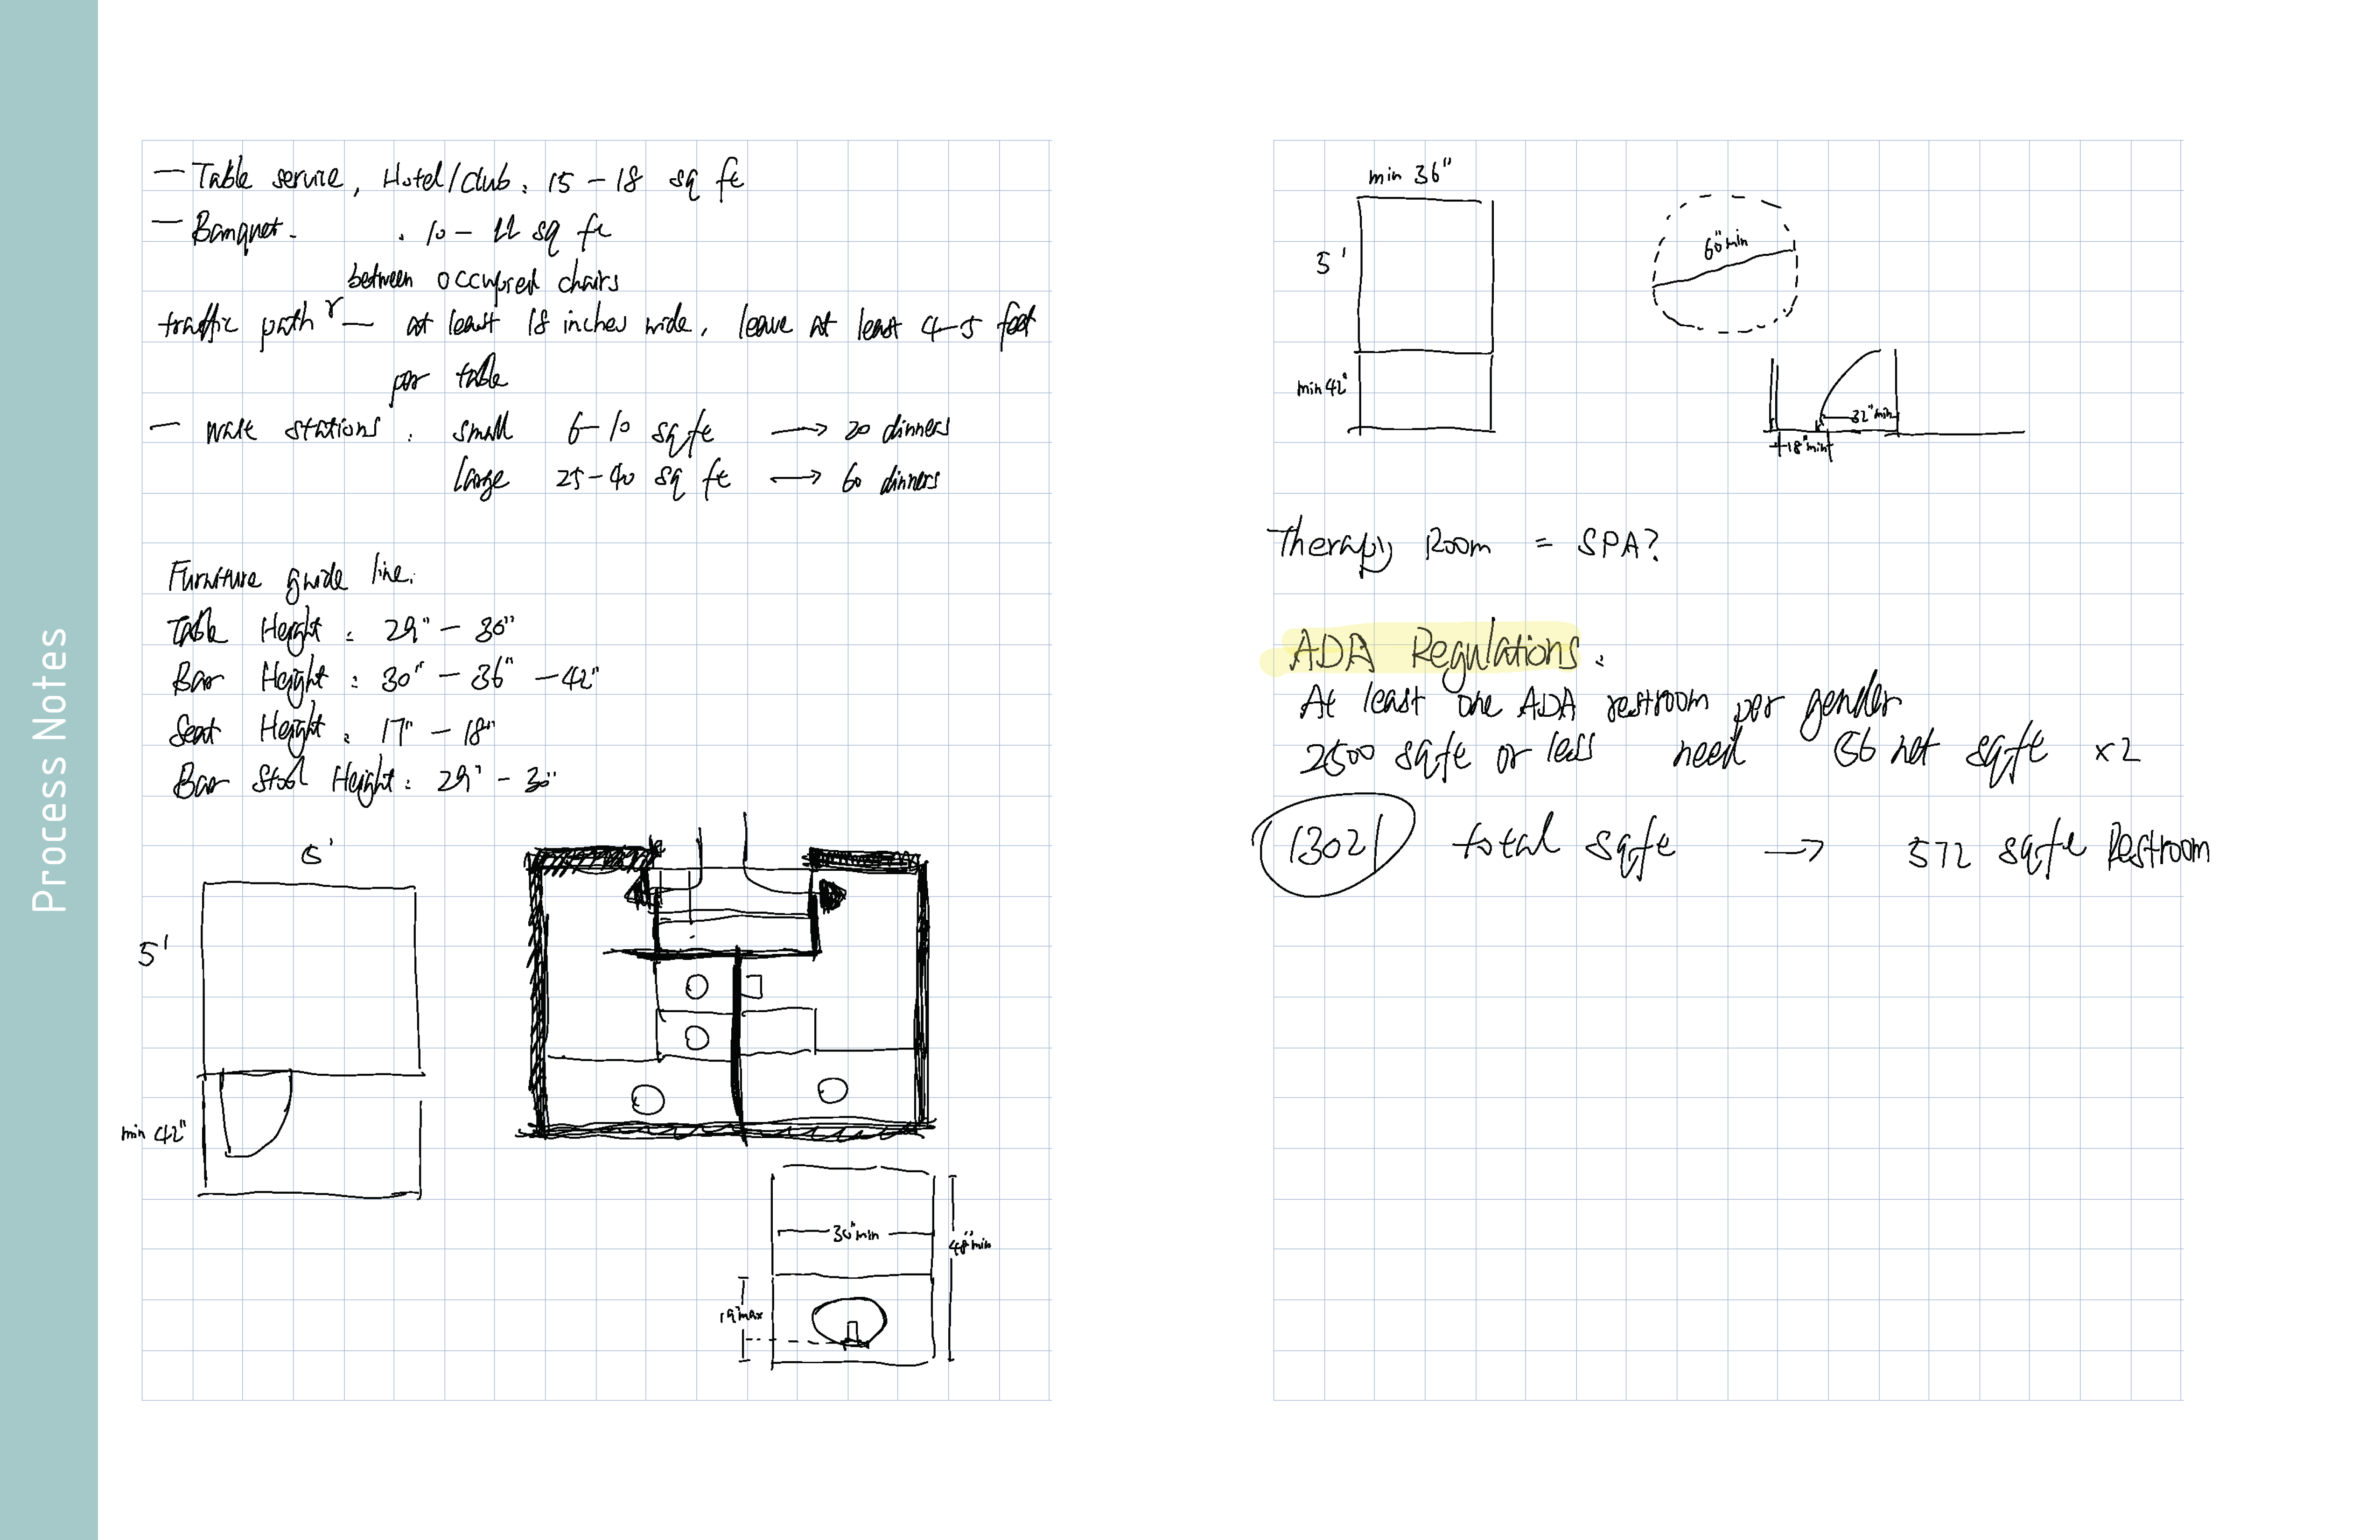 Process Notes
— Table service, Hotel/club : 15 – 18 sq ft
— Banquet . : 10 – 11 sq ft
between occupied chairs
traffic path — at least 18 inches wide, leave at least 4–5 feet
per table
— wait stations : small 6–10 sqft → 20 dinners
large 25–40 sq ft → 60 dinners
Furniture guide line:
Table Height : 29" – 30"
Bar Height : 30" – 36" – 42"
Seat Height : 17" – 18"
Bar Stool Height : 29" – 30"
5'
5'
min 42"
30" min
48" min
19" max
min 36"
5'
min 42"
60" min
32" min
18" min
Therapy Room = SPA?
ADA Regulations :
At least one ADA restroom per gender
2500 sqft or less need net sqft x2
total sqft → 572 sqft Restroom